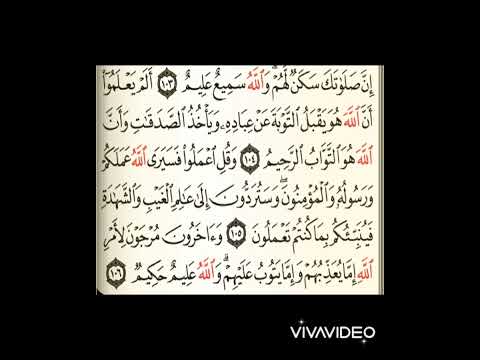 إِنَّ صَلَوٰتَكَ سَكَنٌ لَّهُمْ ۗ وَٱللَّهُ سَمِيعٌ عَلِيمٌ ١٠٣ أَلَمْ يَعْلَمُوٓا۟
أَنَّ ٱللَّهَ هُوَ يَقْبَلُ ٱلتَّوْبَةَ عَنْ عِبَادِهِۦ وَيَأْخُذُ ٱلصَّدَقَـٰتِ وَأَنَّ
ٱللَّهَ هُوَ ٱلتَّوَّابُ ٱلرَّحِيمُ ١٠٤ وَقُلِ ٱعْمَلُوا۟ فَسَيَرَى ٱللَّهُ عَمَلَكُمْ
وَرَسُولُهُۥ وَٱلْمُؤْمِنُونَ ۖ وَسَتُرَدُّونَ إِلَىٰ عَـٰلِمِ ٱلْغَيْبِ وَٱلشَّهَـٰدَةِ
فَيُنَبِّئُكُم بِمَا كُنتُمْ تَعْمَلُونَ ١٠٥ وَءَاخَرُونَ مُرْجَوْنَ لِأَمْرِ
ٱللَّهِ إِمَّا يُعَذِّبُهُمْ وَإِمَّا يَتُوبُ عَلَيْهِمْ ۗ وَٱللَّهُ عَلِيمٌ حَكِيمٌ ١٠٦
VIVAVIDEO